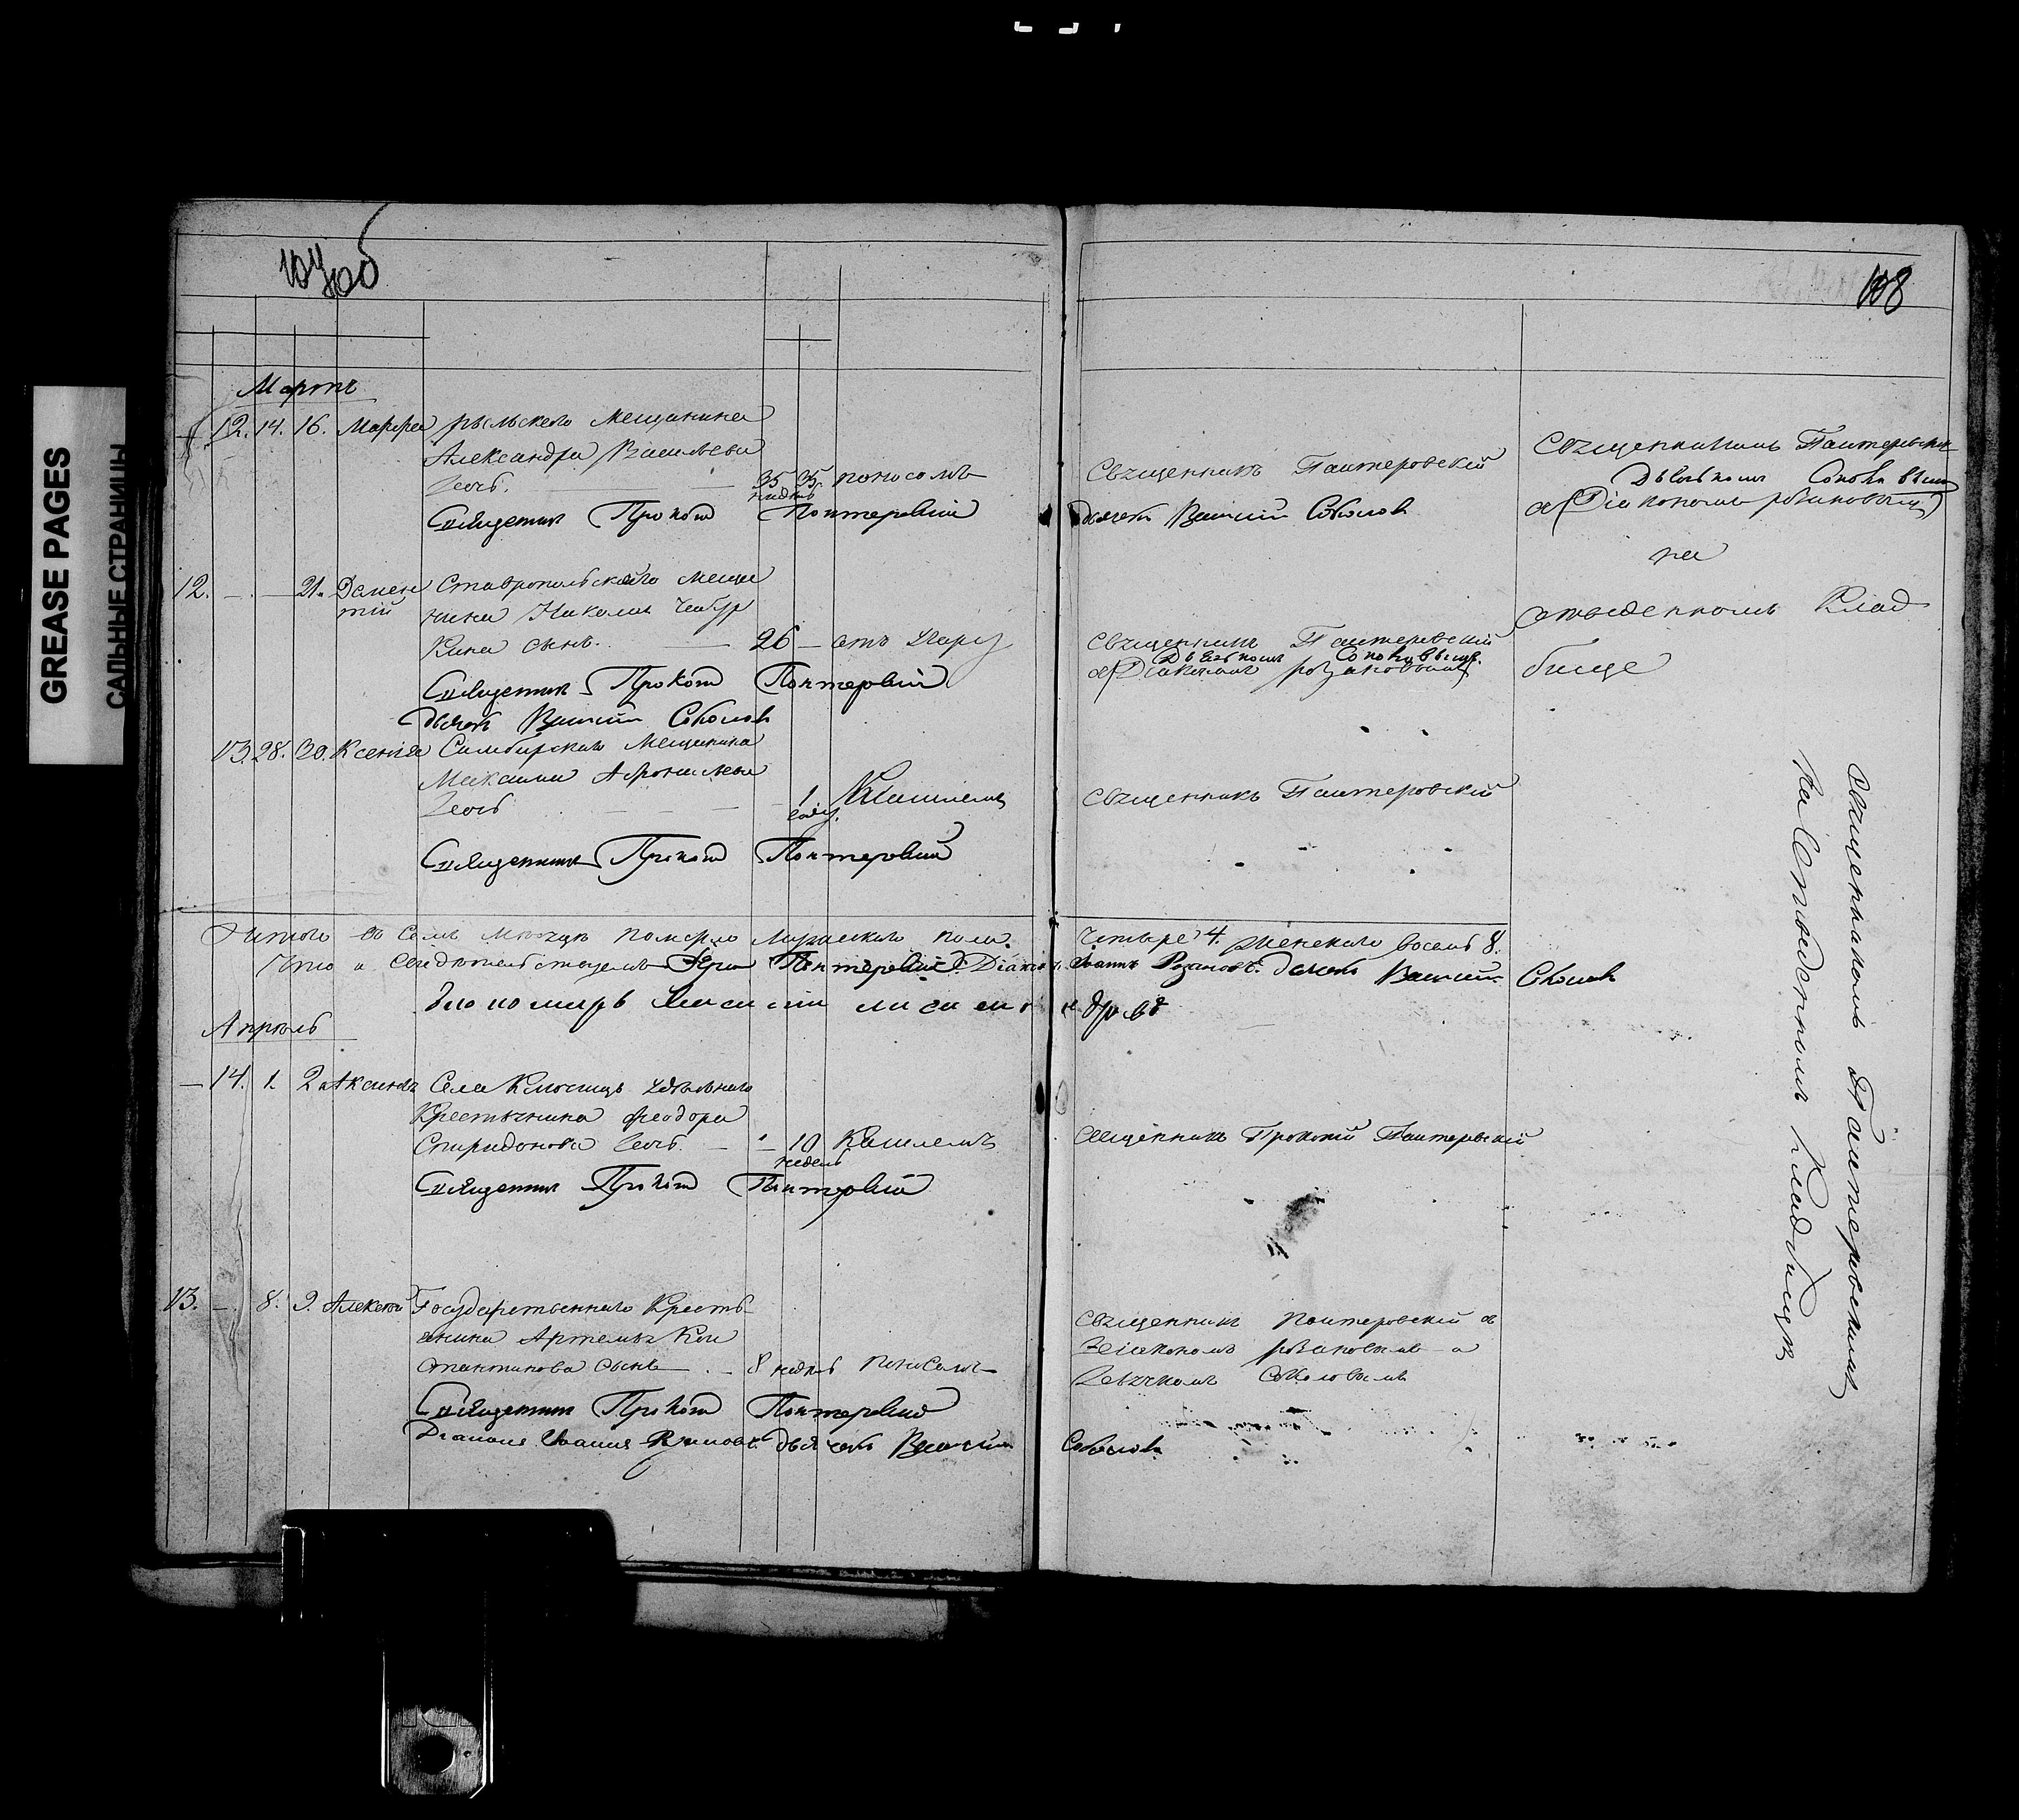 GREASE PAGES
САЛЬНЫЕ СТРАНИЦЫ
108
Мартъ
12. 14. 16. Марфа рыльскаго Мещанина
Александра Васильева
дочь. 35 недѣль 35. поносомъ
Священникъ Прокопій Пантеровскій
Священникъ Пантеровскій
дьячекъ Василій Соколов
Священникомъ Пантеровскимъ
Дьячкомъ Соколовымъ
Діакономъ розановымъ
на
отведенномъ Клад
бище
12. 21. Демен
тій
Ставропольскаго меща
нина Николая
кина сынъ. 26 отъ жару
Священникъ Прокопій Пантеровскій
дьячекъ Василій Соколовъ
Священникъ Пантеровскій
Дьячкомъ Соколовымъ.
Діакономъ розановымъ
13. 28. 30. Ксенія Симбирскаго Мещанина
Максима Афонасьева
дочь 1 году. Кашлемъ
Священникъ Прокопій Пантеровскій
Священникъ Пантеровскій
Итого въ семъ мѣсяцѣ померло мужескаго пола. Четыре 4. Женскаго восемь 8.
Что и свидѣтельствуемъ Іерей Пантеровскій Діаконъ Іоаннъ Розановъ. дьячекъ Василій Соколовъ
Апрѣль
14. 1. 2 Аксинья Села Ключищъ удѣльнаго
Крестьянина Феодора
Спиридонова дочь. 10 недель Кашлемъ
Священникъ Прокопій Пантеровскій
Священникъ Прокопій Пантеровскій
13. 8. 9. Алексей Государственнаго Кресть
янина Артемья Кон
стантинова сынъ 8 недель поносомъ
Священникъ Прокопій Пантеровскій
Діаконъ Іоаннъ Розановъ. дьячекъ Василій Соколовъ
Священникъ Пантеровскій съ
діакономъ розановымъ и
дьячкомъ Соколовымъ
Священникомъ Пантеровскимъ
На Отведенномъ Кладбищѣ